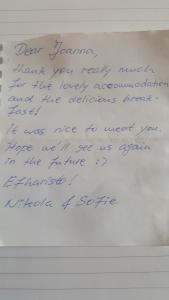 Dear Ioanna,
thank you really much
for the lovely accommodation
and the delicious break-
fast!
It was nice to meet you.
Hope we'll see us again
in the future :)
Efharisto!
Nikola & Sofie